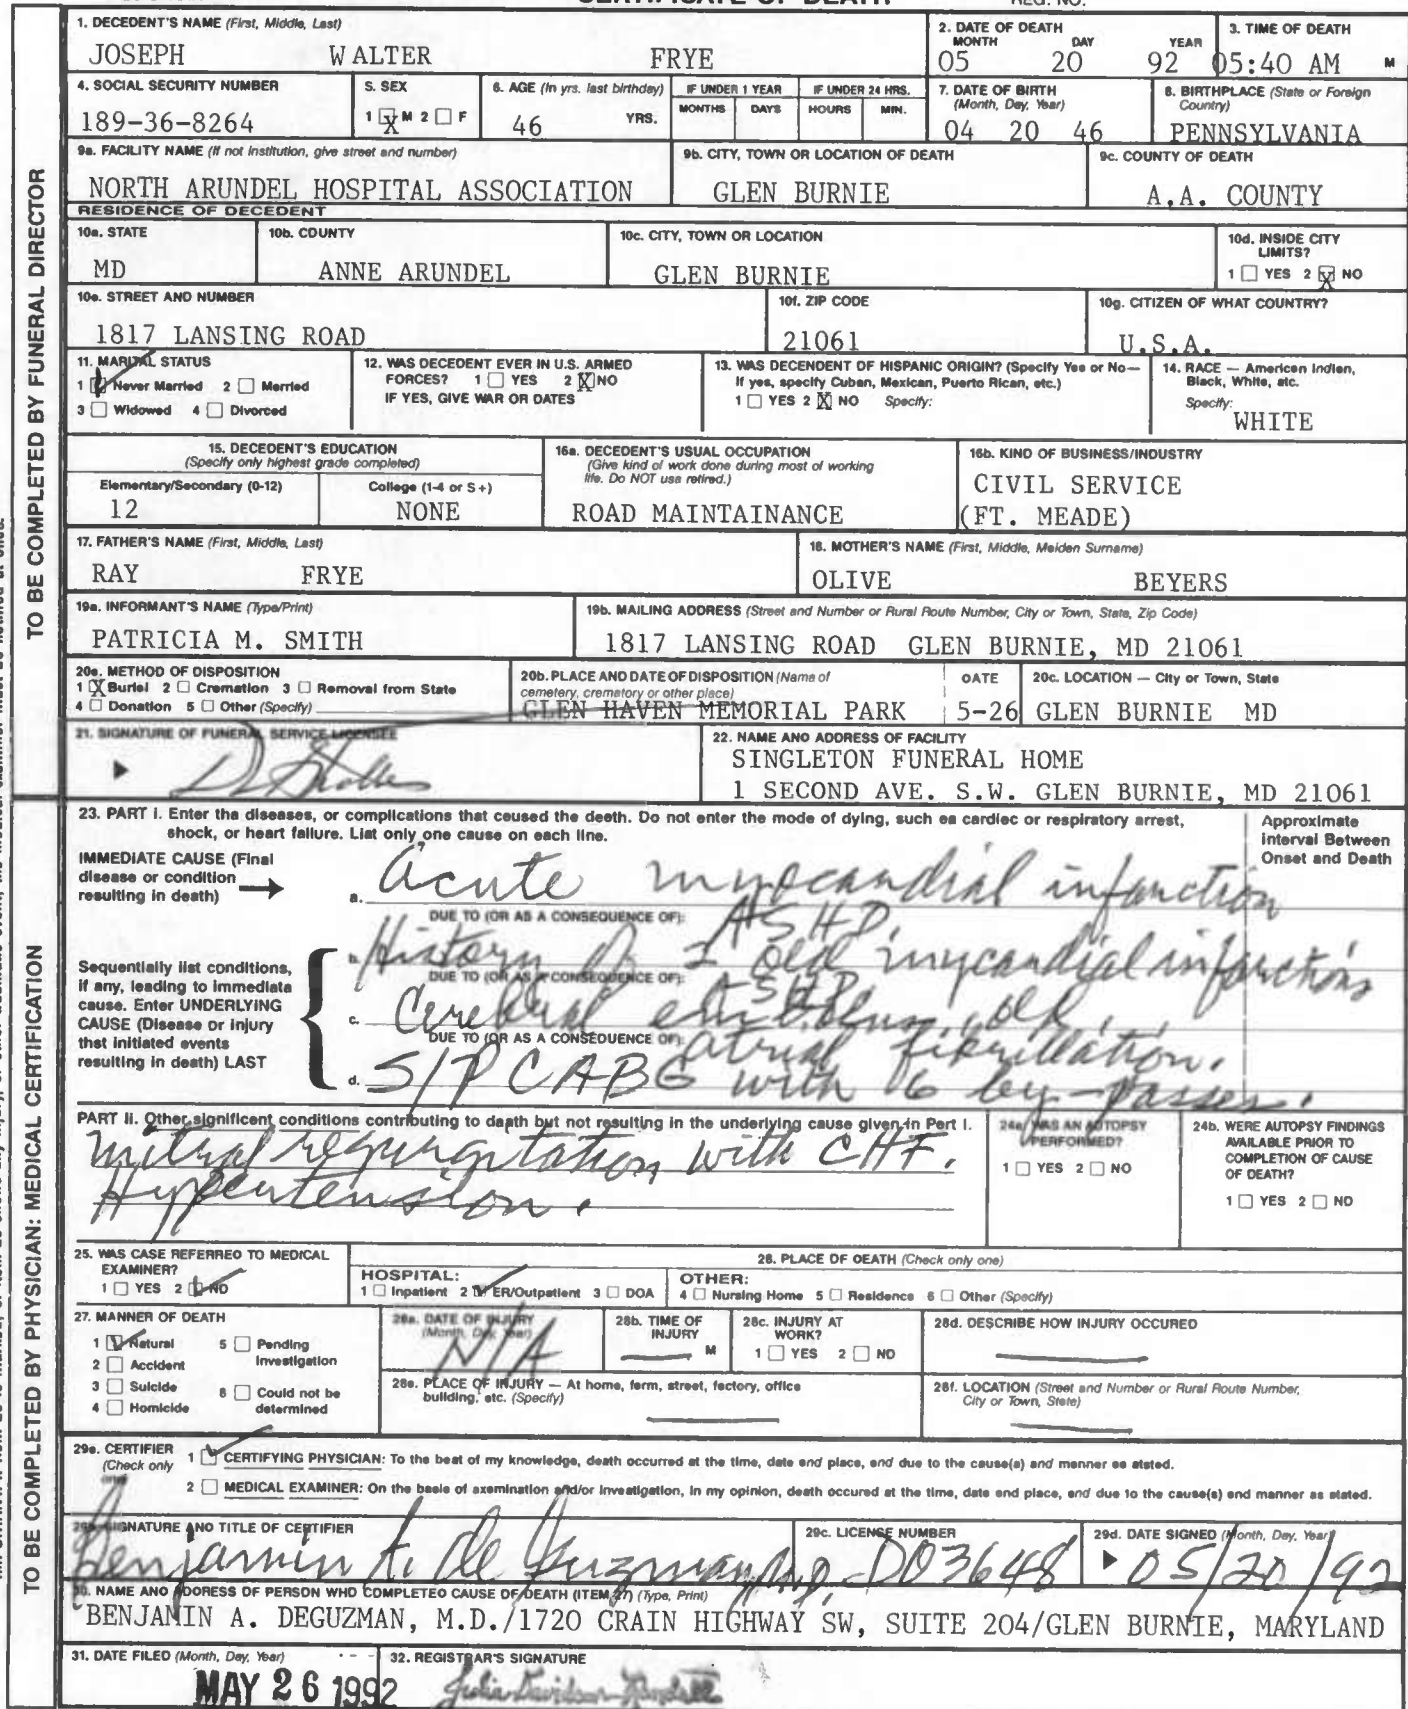 1. DECEDENT'S NAME (First, Middle, Last)
JOSEPH WALTER FRYE
2. DATE OF DEATH
MONTH DAY YEAR
05 20 92
3. TIME OF DEATH
05:40 AM M
4. SOCIAL SECURITY NUMBER
189-36-8264
5. SEX
1 ☒ M 2 ☐ F
6. AGE (In yrs. last birthday)
46 YRS.
IF UNDER 1 YEAR
MONTHS DAYS
IF UNDER 24 HRS.
HOURS MIN.
7. DATE OF BIRTH
(Month, Day, Year)
04 20 46
8. BIRTHPLACE (State or Foreign
Country)
PENNSYLVANIA
9a. FACILITY NAME (If not institution, give street and number)
NORTH ARUNDEL HOSPITAL ASSOCIATION
9b. CITY, TOWN OR LOCATION OF DEATH
GLEN BURNIE
9c. COUNTY OF DEATH
A.A. COUNTY
RESIDENCE OF DECEDENT
10a. STATE
MD
10b. COUNTY
ANNE ARUNDEL
10c. CITY, TOWN OR LOCATION
GLEN BURNIE
10d. INSIDE CITY
LIMITS?
1 ☐ YES 2 ☒ NO
10e. STREET AND NUMBER
1817 LANSING ROAD
10f. ZIP CODE
21061
10g. CITIZEN OF WHAT COUNTRY?
U.S.A.
11. MARITAL STATUS
1 ☑ Never Married 2 ☐ Married
3 ☐ Widowed 4 ☐ Divorced
12. WAS DECEDENT EVER IN U.S. ARMED
FORCES? 1 ☐ YES 2 ☒ NO
IF YES, GIVE WAR OR DATES
13. WAS DECENDENT OF HISPANIC ORIGIN? (Specify Yes or No—
If yes, specify Cuban, Mexican, Puerto Rican, etc.)
1 ☐ YES 2 ☒ NO Specify:
14. RACE — American Indian,
Black, White, etc.
Specify:
WHITE
15. DECEDENT'S EDUCATION
(Specify only highest grade completed)
Elementary/Secondary (0-12) College (1-4 or 5+)
12 NONE
16a. DECEDENT'S USUAL OCCUPATION
(Give kind of work done during most of working
life. Do NOT use retired.)
ROAD MAINTAINANCE
16b. KIND OF BUSINESS/INDUSTRY
CIVIL SERVICE
(FT. MEADE)
17. FATHER'S NAME (First, Middle, Last)
RAY FRYE
18. MOTHER'S NAME (First, Middle, Maiden Surname)
OLIVE BEYERS
19a. INFORMANT'S NAME (Type/Print)
PATRICIA M. SMITH
19b. MAILING ADDRESS (Street and Number or Rural Route Number, City or Town, State, Zip Code)
1817 LANSING ROAD GLEN BURNIE, MD 21061
20a. METHOD OF DISPOSITION
1 ☒ Burial 2 ☐ Cremation 3 ☐ Removal from State
4 ☐ Donation 5 ☐ Other (Specify)
20b. PLACE AND DATE OF DISPOSITION (Name of
cemetery, crematory or other place)
GLEN HAVEN MEMORIAL PARK
DATE
5-26
20c. LOCATION — City or Town, State
GLEN BURNIE MD
21. SIGNATURE OF FUNERAL SERVICE LICENSEE
22. NAME AND ADDRESS OF FACILITY
SINGLETON FUNERAL HOME
1 SECOND AVE. S.W. GLEN BURNIE, MD 21061
TO BE COMPLETED BY FUNERAL DIRECTOR
23. PART I. Enter the diseases, or complications that caused the death. Do not enter the mode of dying, such as cardiac or respiratory arrest,
shock, or heart failure. List only one cause on each line.
Approximate
Interval Between
Onset and Death
IMMEDIATE CAUSE (Final
disease or condition
resulting in death)
a. Acute myocardial infarction
DUE TO (OR AS A CONSEQUENCE OF): ASHD.
Sequentially list conditions,
if any, leading to immediate
cause. Enter UNDERLYING
CAUSE (Disease or injury
that initiated events
resulting in death) LAST
b. History of 2 old myocardial infarctions
DUE TO (OR AS A CONSEQUENCE OF): ASHD.
c. Cerebral embolus, old,
DUE TO (OR AS A CONSEQUENCE OF): atrial fibrillation.
d. S/P CABG with 6 by-passes.
PART II. Other significant conditions contributing to death but not resulting in the underlying cause given in Part I.
Mitral regurgitation with CHF.
Hypertension.
24a. WAS AN AUTOPSY
PERFORMED?
1 ☐ YES 2 ☐ NO
24b. WERE AUTOPSY FINDINGS
AVAILABLE PRIOR TO
COMPLETION OF CAUSE
OF DEATH?
1 ☐ YES 2 ☐ NO
25. WAS CASE REFERRED TO MEDICAL
EXAMINER?
1 ☐ YES 2 ☑ NO
26. PLACE OF DEATH (Check only one)
HOSPITAL:
1 ☐ Inpatient 2 ☑ ER/Outpatient 3 ☐ DOA
OTHER:
4 ☐ Nursing Home 5 ☐ Residence 6 ☐ Other (Specify)
27. MANNER OF DEATH
1 ☑ Natural 5 ☐ Pending
Investigation
2 ☐ Accident
3 ☐ Suicide 6 ☐ Could not be
determined
4 ☐ Homicide
28a. DATE OF INJURY
(Month, Day, Year)
N/A
28b. TIME OF
INJURY
M
28c. INJURY AT
WORK?
1 ☐ YES 2 ☐ NO
28d. DESCRIBE HOW INJURY OCCURED
28e. PLACE OF INJURY — At home, farm, street, factory, office
building, etc. (Specify)
28f. LOCATION (Street and Number or Rural Route Number,
City or Town, State)
29a. CERTIFIER
(Check only
one)
1 ☑ CERTIFYING PHYSICIAN: To the best of my knowledge, death occurred at the time, date and place, and due to the cause(s) and manner as stated.
2 ☐ MEDICAL EXAMINER: On the basis of examination and/or investigation, in my opinion, death occured at the time, date and place, and due to the cause(s) and manner as stated.
29b. SIGNATURE AND TITLE OF CERTIFIER
Benjamin A. de Guzman, M.D.
29c. LICENSE NUMBER
D03648
29d. DATE SIGNED (Month, Day, Year)
05/20/92
30. NAME AND ADDRESS OF PERSON WHO COMPLETED CAUSE OF DEATH (ITEM 27) (Type, Print)
BENJAMIN A. DEGUZMAN, M.D./1720 CRAIN HIGHWAY SW, SUITE 204/GLEN BURNIE, MARYLAND
31. DATE FILED (Month, Day, Year)
MAY 26 1992
32. REGISTRAR'S SIGNATURE
TO BE COMPLETED BY PHYSICIAN: MEDICAL CERTIFICATION